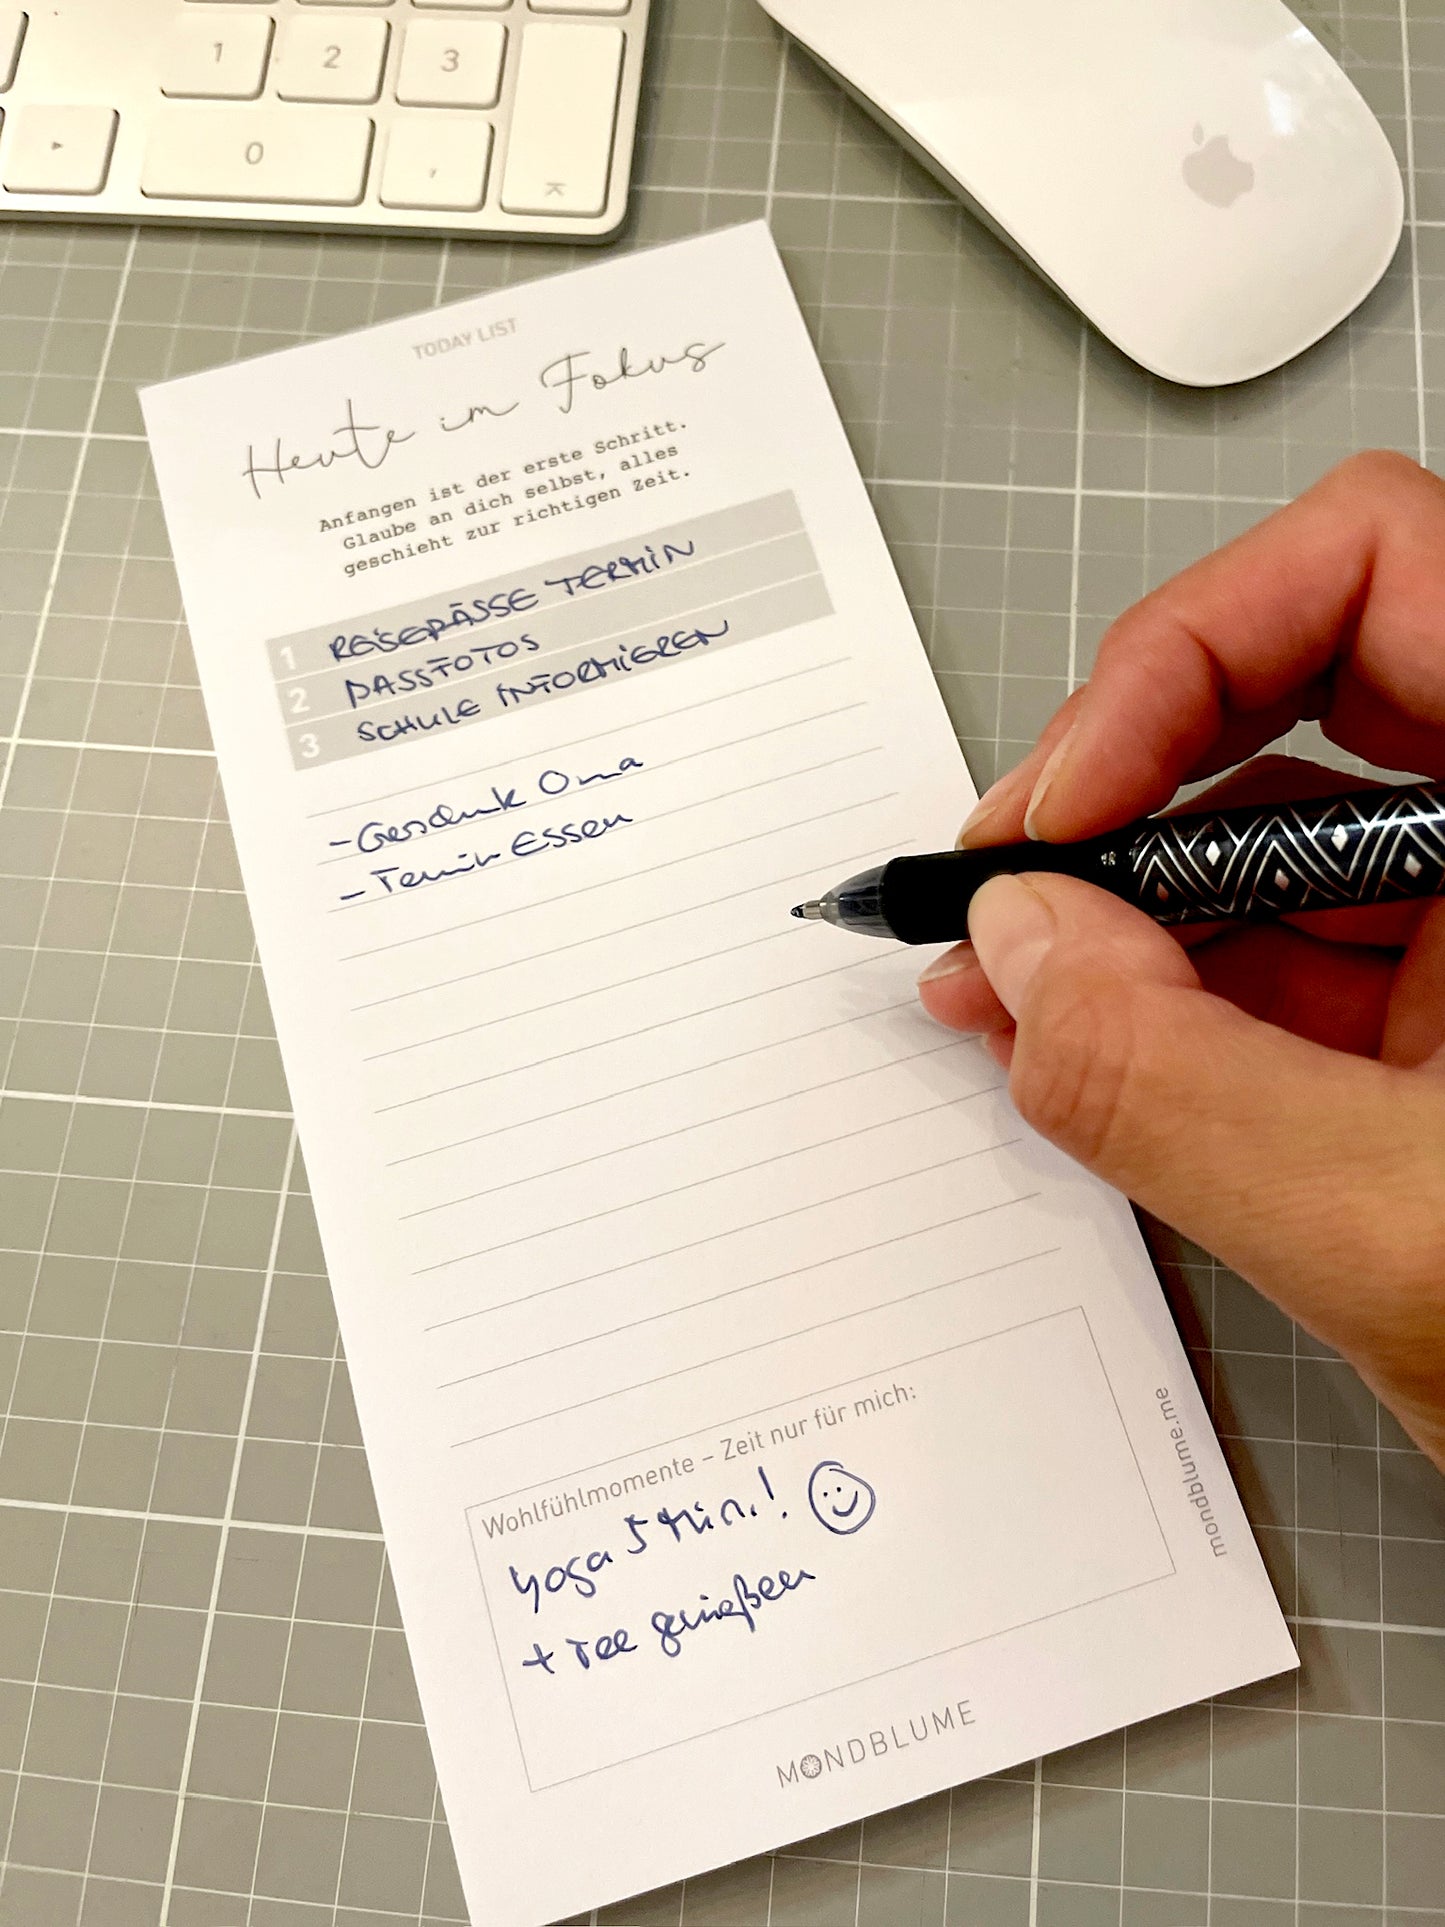 1
2
3
0
,
TODAY LIST
Heute im Fokus
Anfangen ist der erste Schritt.
Glaube an dich selbst, alles
geschieht zur richtigen Zeit.
1 REISEPÄSSE TERMIN
2 PASSFOTOS
3 SCHULE INFORMIEREN
- Geschenk Oma
- Termin Essen
Wohlfühlmomente – Zeit nur für mich:
Yoga 5 Min.!
+ Tee genießen
mondblume.me
MONDBLUME